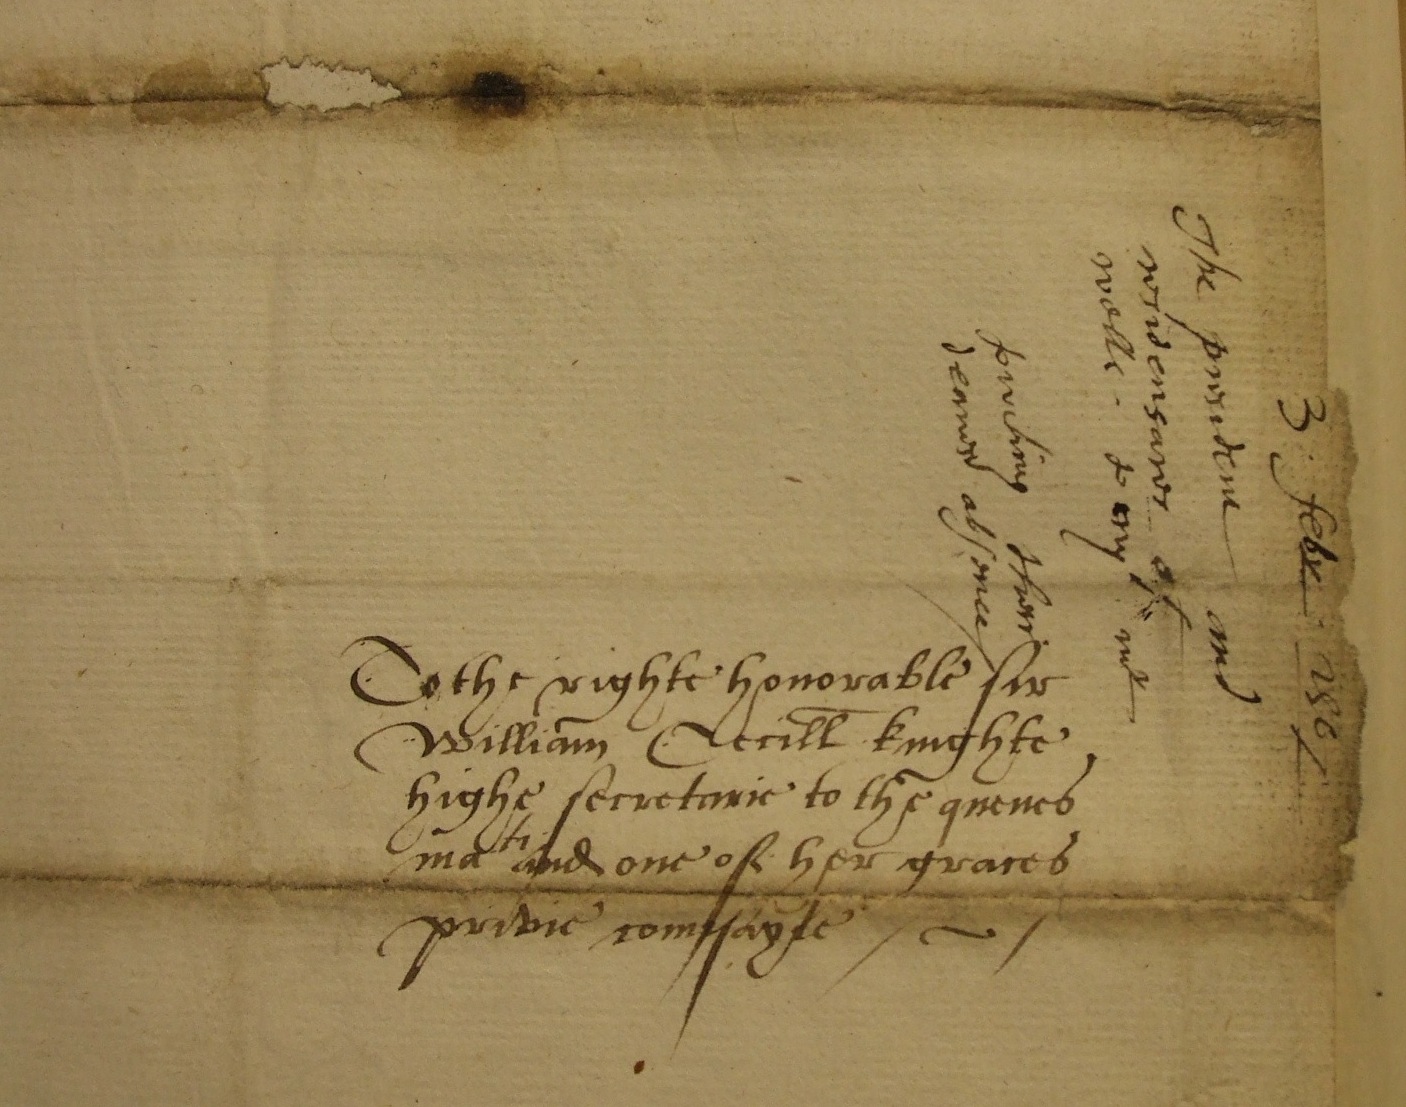 3 febr 156
The president and
residensaries of
welles. to my mr
towching their
deanes absence
To the righte honorable sir
William Cecill knighte
highe secretarie to the quenes
matie and one of her graces
privie counsayle